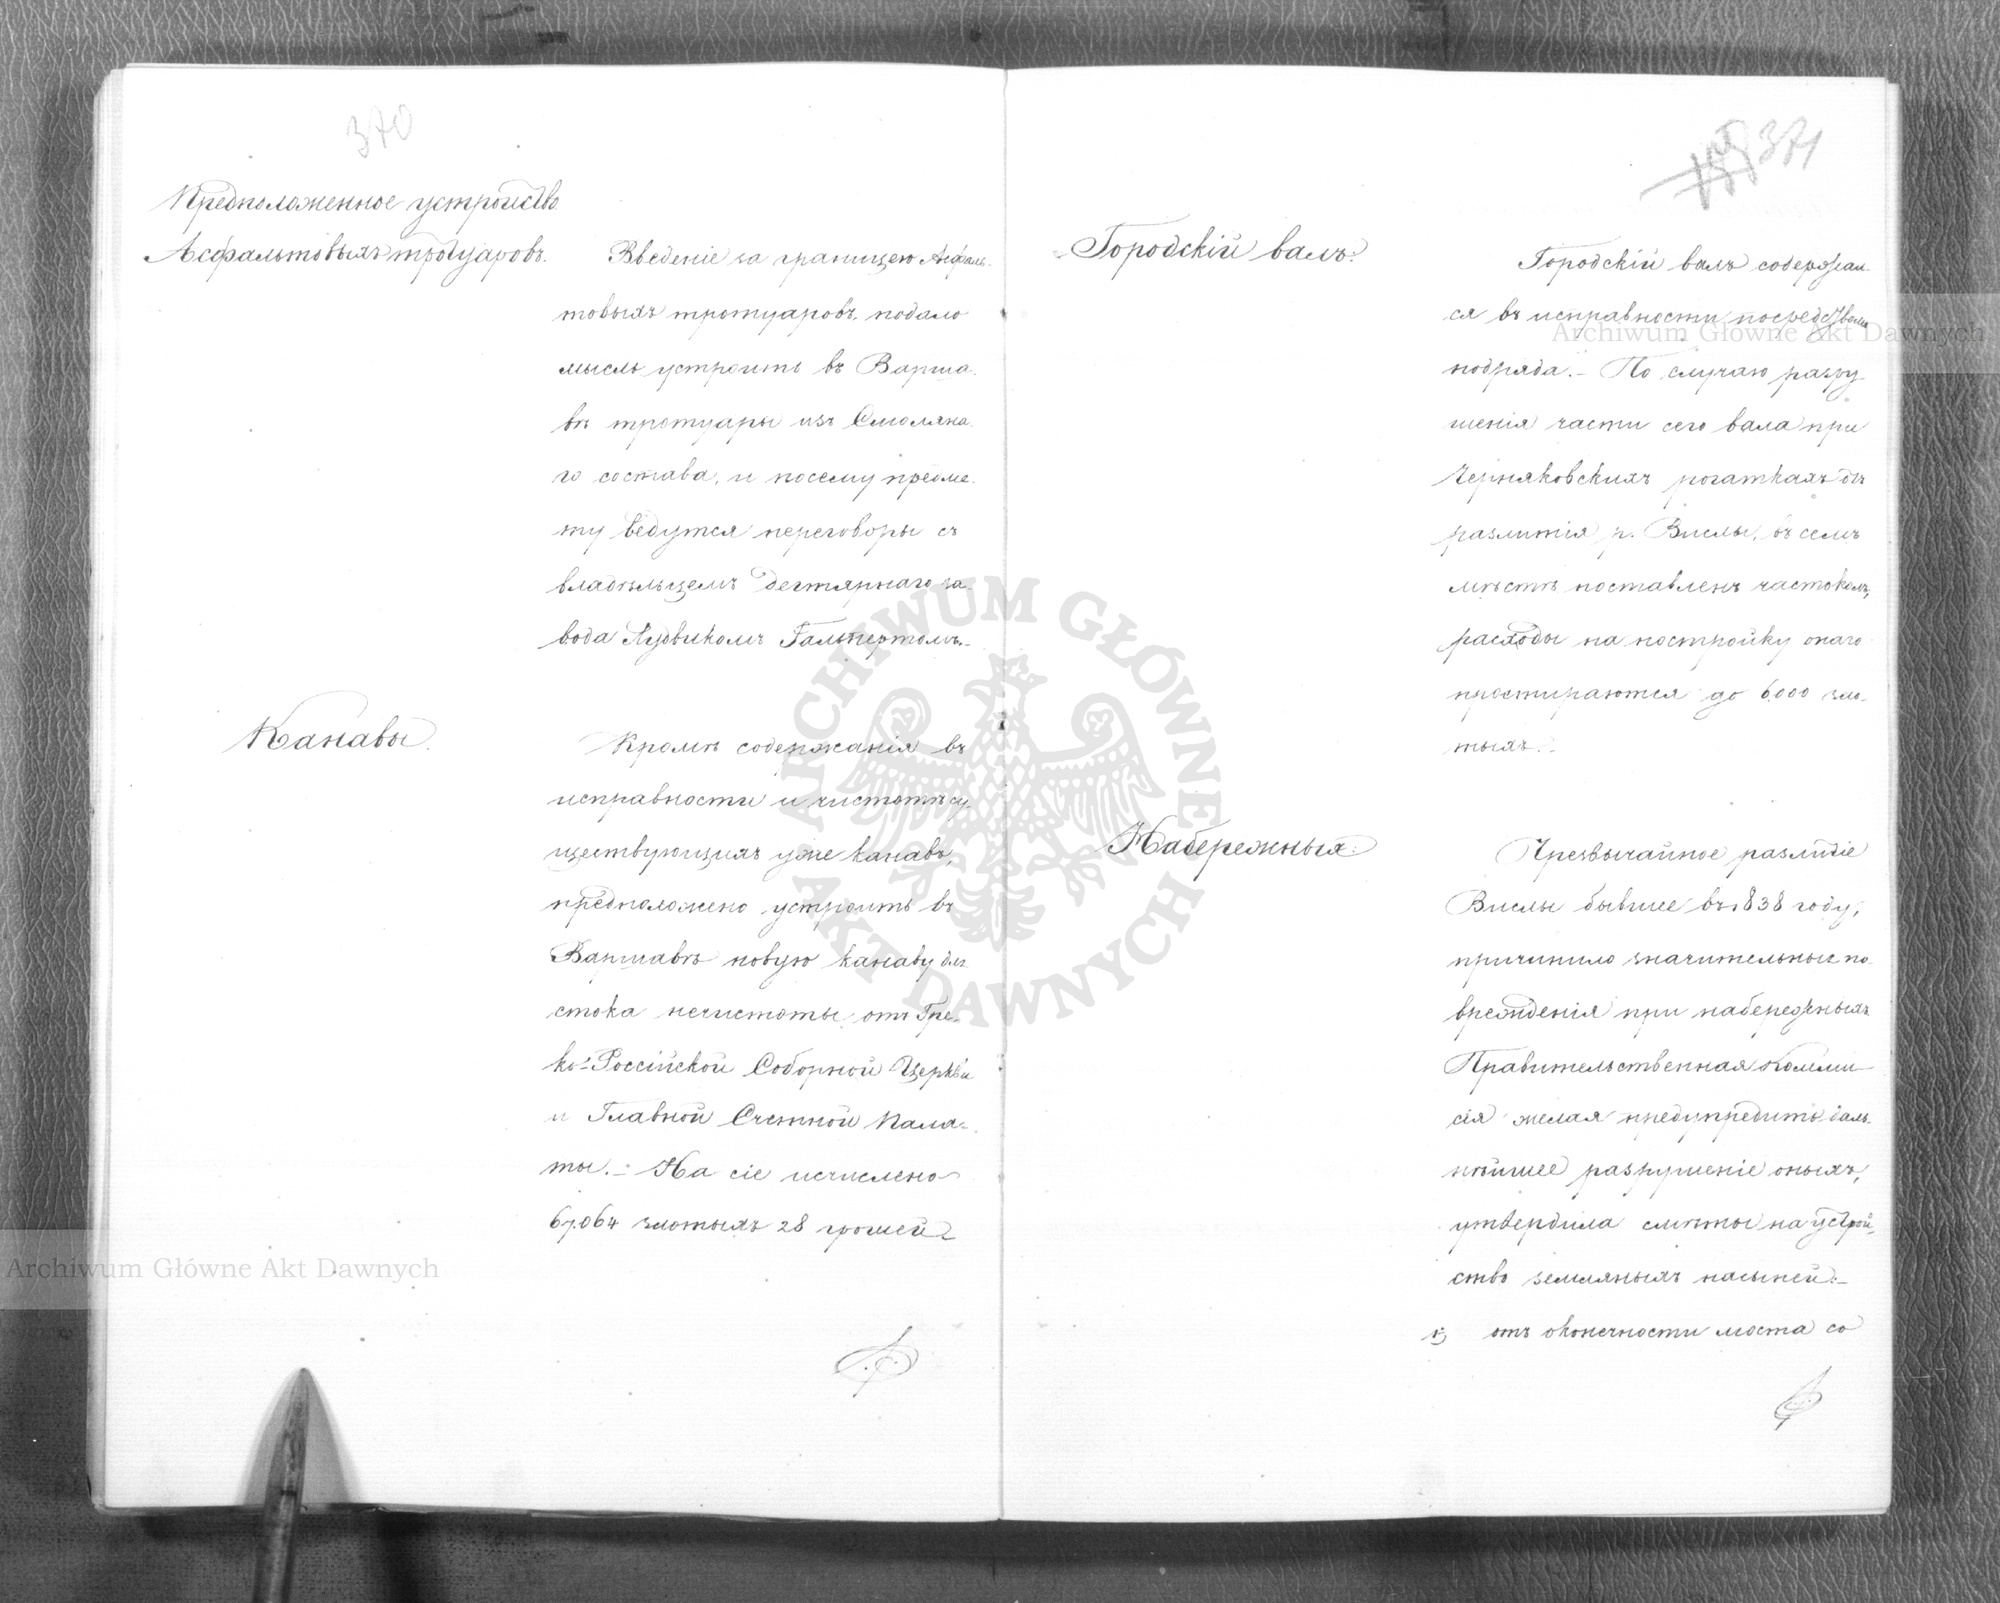 370
Предположенное устройство
Асфальтовыхъ тротуаровъ.
Введеніе за границею Асфаль-
товыхъ тротуаровъ, подало
мысль устроить въ Варша-
вѣ тротуары изъ Смоляна-
го состава, и посему предме-
ту ведутся переговоры съ
владѣльцемъ дегтярнаго за-
вода Лудвикомъ Гальпертомъ.-
Канавы.
Кромѣ содержанія въ
исправности и чистотѣ су-
ществующихъ уже канавъ,
предположено устроить въ
Варшавѣ новую канаву для
стока нечистоты отъ Гре-
ко-Россійской Соборной Церкви
и Главной Счетной Пала-
ты.- На сіе исчислено
67.064 злотыхъ 28 грошей
371
Городскій валъ.
Городскій валъ содержал-
ся въ исправности посредствомъ
подряда.- По случаю разру
шенія части сего вала при
Черняковскихъ рогаткахъ отъ
разлитія р. Вислы, въ семъ
мѣстѣ поставленъ частоколъ,
расходы на постройку онаго
простираются до 6000 зло-
тыхъ.-
Набережныя.
Чрезвычайное разлитіе
Вислы бывшее въ 1838 году,
причинило значительные по-
врежденія при набережныхъ
Правительственная Коммис-
сія желая предупредить даль-
нѣйшее разрушеніе оныхъ,
утвердила смѣты на устрой-
ство земляныхъ насыпей:-
1, отъ оконечности моста со
Archiwum Główne Akt Dawnych
Archiwum Główne Akt Dawnych
ARCHIWUM GŁÓWNE
AKT DAWNYCH